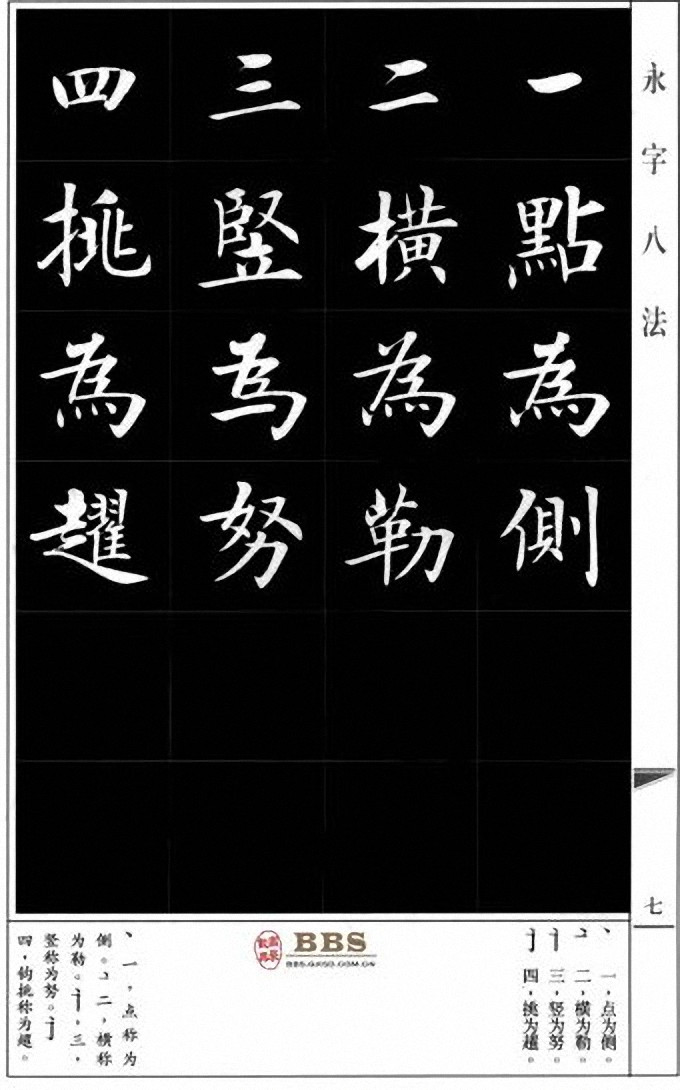 永字八法
七
一點為側
二橫為勒
三竪為努
四挑為趯
丶 一，点为侧。
二，横为勒。
三，竖为努。
四，挑为趯。
BBS
丶一，点称为
侧。二，横称
为勒。三，
竖称为努。
四，钩挑称为趯。